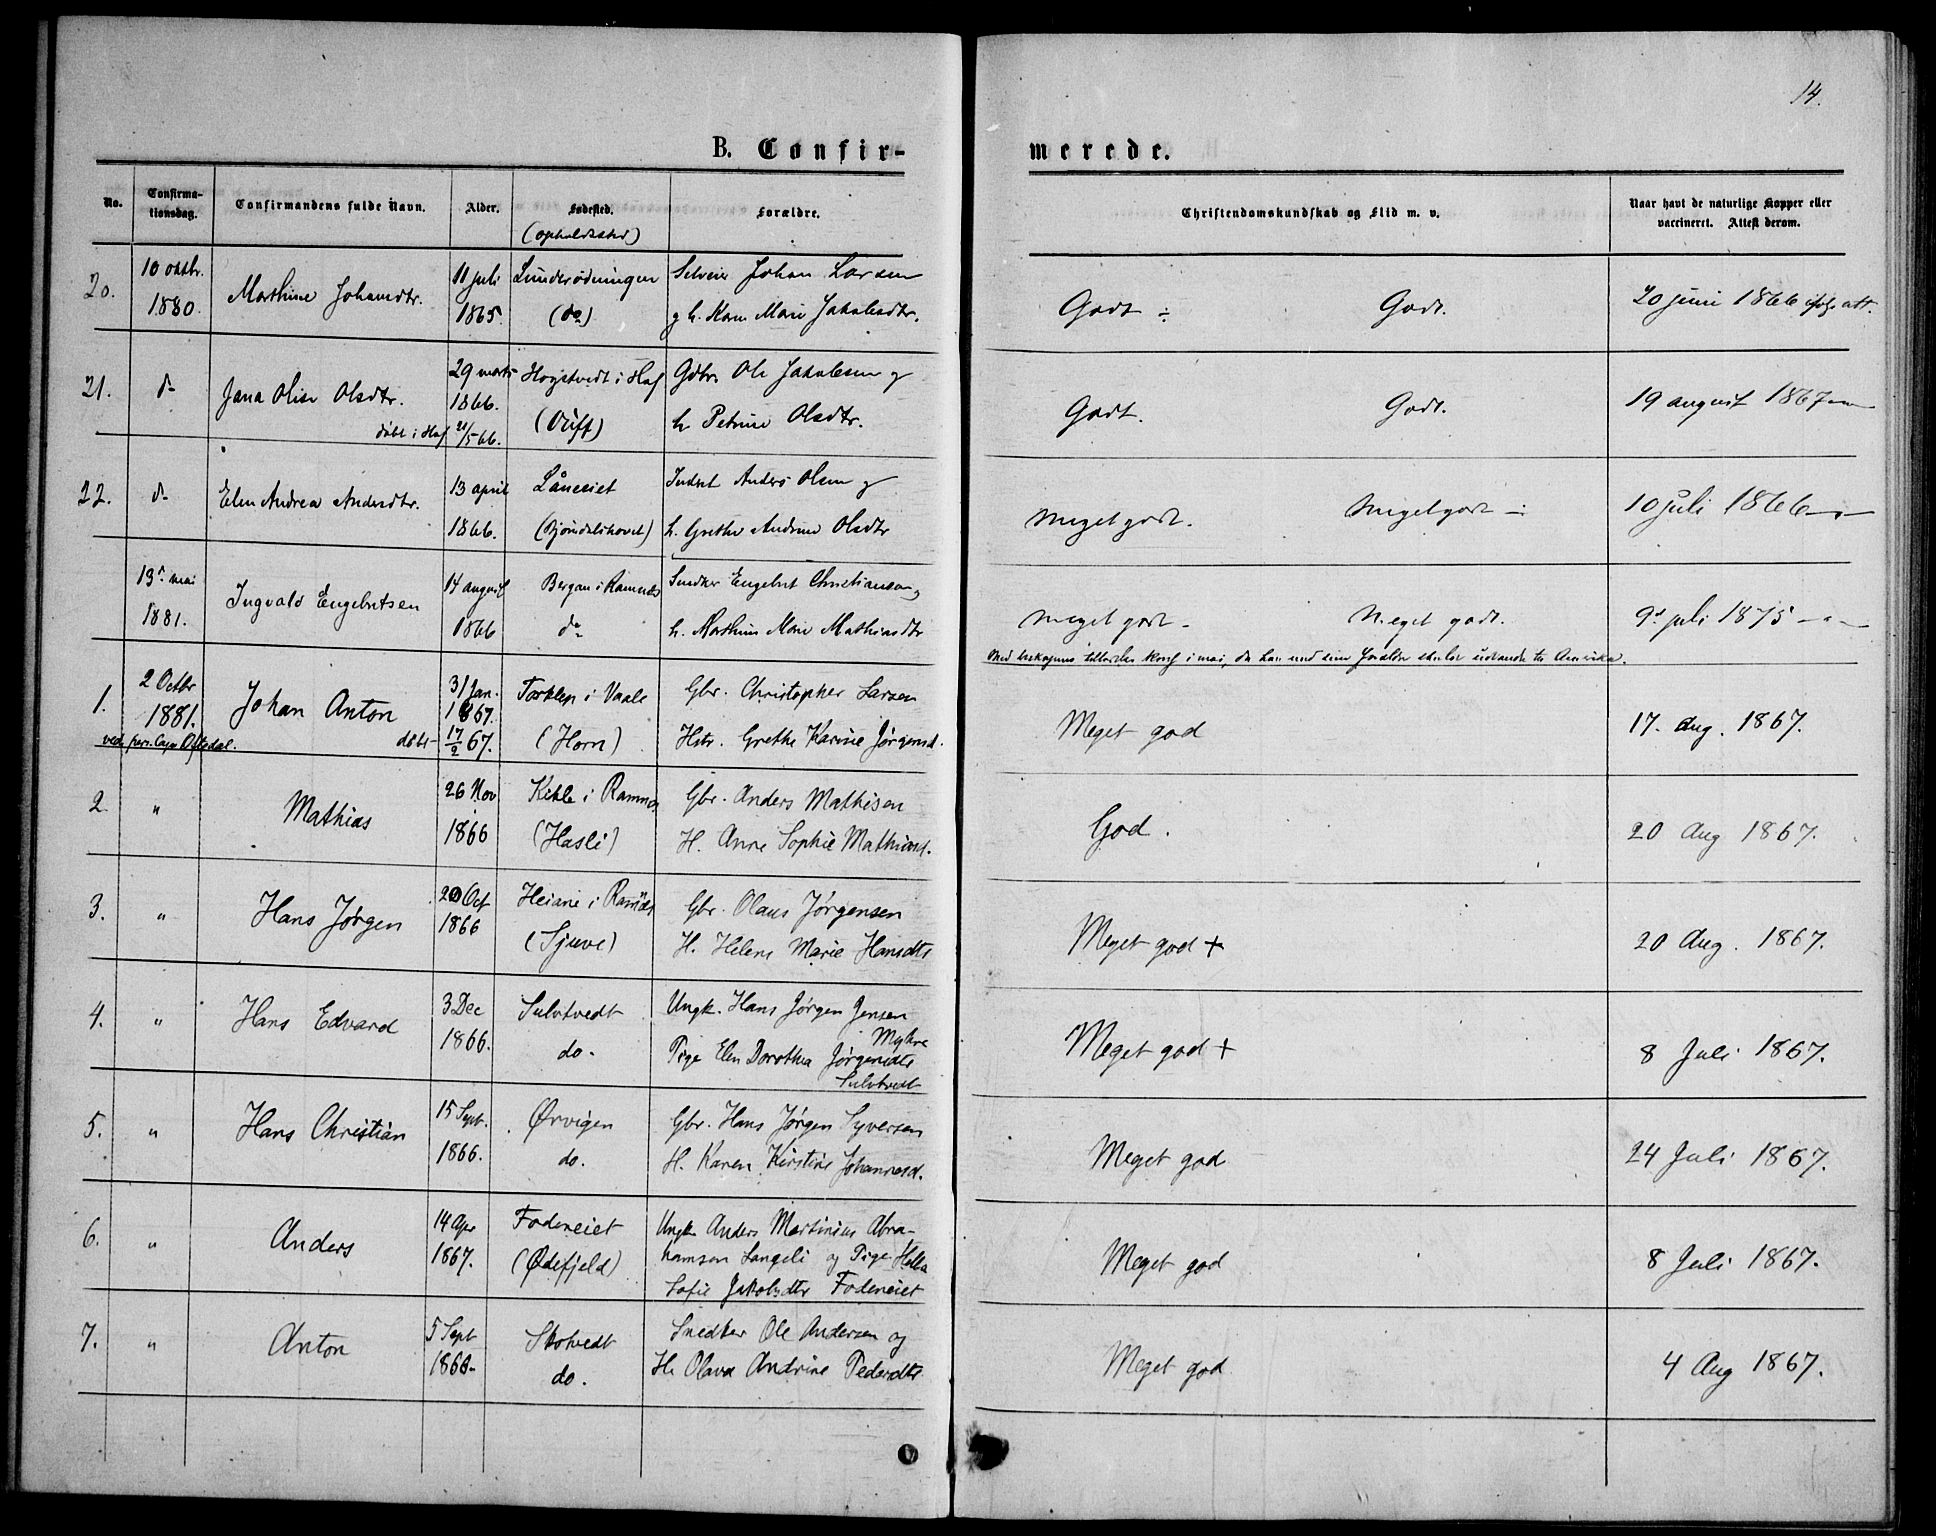 14.
B. Confir-
merede.
No.
Confirma-
tionsdag.
Confirmandens fulde Navn.
Alder.
Fødested.
(opholdssted)
Forældre.
Christendomskundskab og Flid m. v.
Naar havt de naturlige Kopper eller
vaccineret. Attest derom.
20.
10 oktbr.
1880.
Marthine Johansdtr.
11 juli
1865.
Sunderødningen
(do)
Selveier Johan Larsen
og h. Karen Marie Jakobsdtr.
Godt ÷
Godt.
20 juni 1866 ifølge att.
21.
do
Jana Olise Olsdtr.
døbt i Hof
29 marts
1866.
21/5 66.
Hogstvedt i Hof
Gdbr. Ole Jakobsen og
h. Petrine Olsdtr.
Godt.
Godt.
19 august 1867 —"—
22.
do
Elen Andrea Andersdtr.
13 april
1866.
Låneeiet
Inderst Anders Olsen og
h. Grethe Andrine Olsdtr
Meget godt.
Meget godt ÷
10 juli 1866 —"—
13de mai
1881.
Ingvald Engebretsen
14 august
1866
Bergan i Ramnes
do
Snedker Engebret Christiansen og
h. Marthine Marie Mathiasdtr
Meget godt -
Meget godt.
9de juli 1875 —"—
Med biskopens tilladelse konf i mai, da han med sine forældre skulde udvandre til Amerika.
1.
2 Octbr
1881.
ved pers. Cap. Oftedal.
Johan Anton
døbt -
31 Jan.
1867.
17/2 67.
i Vaale
(Horn)
Gbr. Christopher Larsen
Hstr. Grethe Karine Jørgensd.
Meget god
17. Aug. 1867.
2
"
Mathias
26 Nov
1866
Kihle i Ramnes
(Hasli)
Gbr. Anders Mathisen
H. Anne Sophie Mathiasd.
God.
20 Aug 1867.
3.
"
Hans Jørgen
20 Oct
1866
Heiane i Ramnes
(Sjuve)
Gbr. Olaus Jørgensen
H. Helene Marie Hansdtr
Meget god +
20 Aug. 1867.
4.
"
Hans Edvard
3 Dec
1866.
Sulutvedt
do.
Ungk. Hans Jørgen Jensen
Myhre
Pige Elen Dorothea Jørgensdtr
Sulutvedt
Meget god +
8 Juli 1867.
5.
"
Hans Christian
15 Sept.
1866.
Ørvigen
do.
Gbr. Hans Jørgen Syversen
H. Karen Kirstine Johannesd.
Meget god
24 Juli 1867.
6.
"
Anders
14 Apr
1867.
Fodeneiet
(Ødefjeld)
Ungk. Anders Martinius Abra-
hamsen Langeli og Pige Helle
Sofie Jakobsdtr Fodeneiet
Meget god
8 Juli 1867.
7.
"
Anton
5 Sept
1866.
Skotvedt
do.
Snedker Ole Andersen og
H. Olava Andrine Pedersdtr.
Meget god
4 Aug 1867.